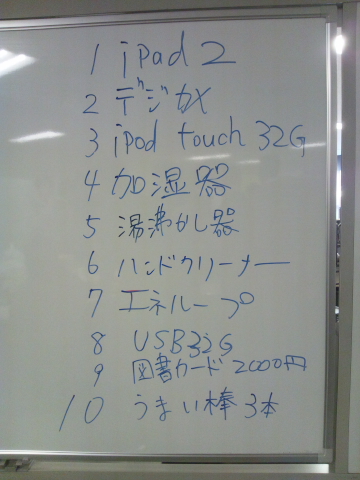 1 iPad 2
2 デジカメ
3 iPod touch 32G
4 加湿器
5 湯沸かし器
6 ハンドクリーナー
7 エネループ
8 USB32G
9 図書カード 2000円
10 うまい棒 3本